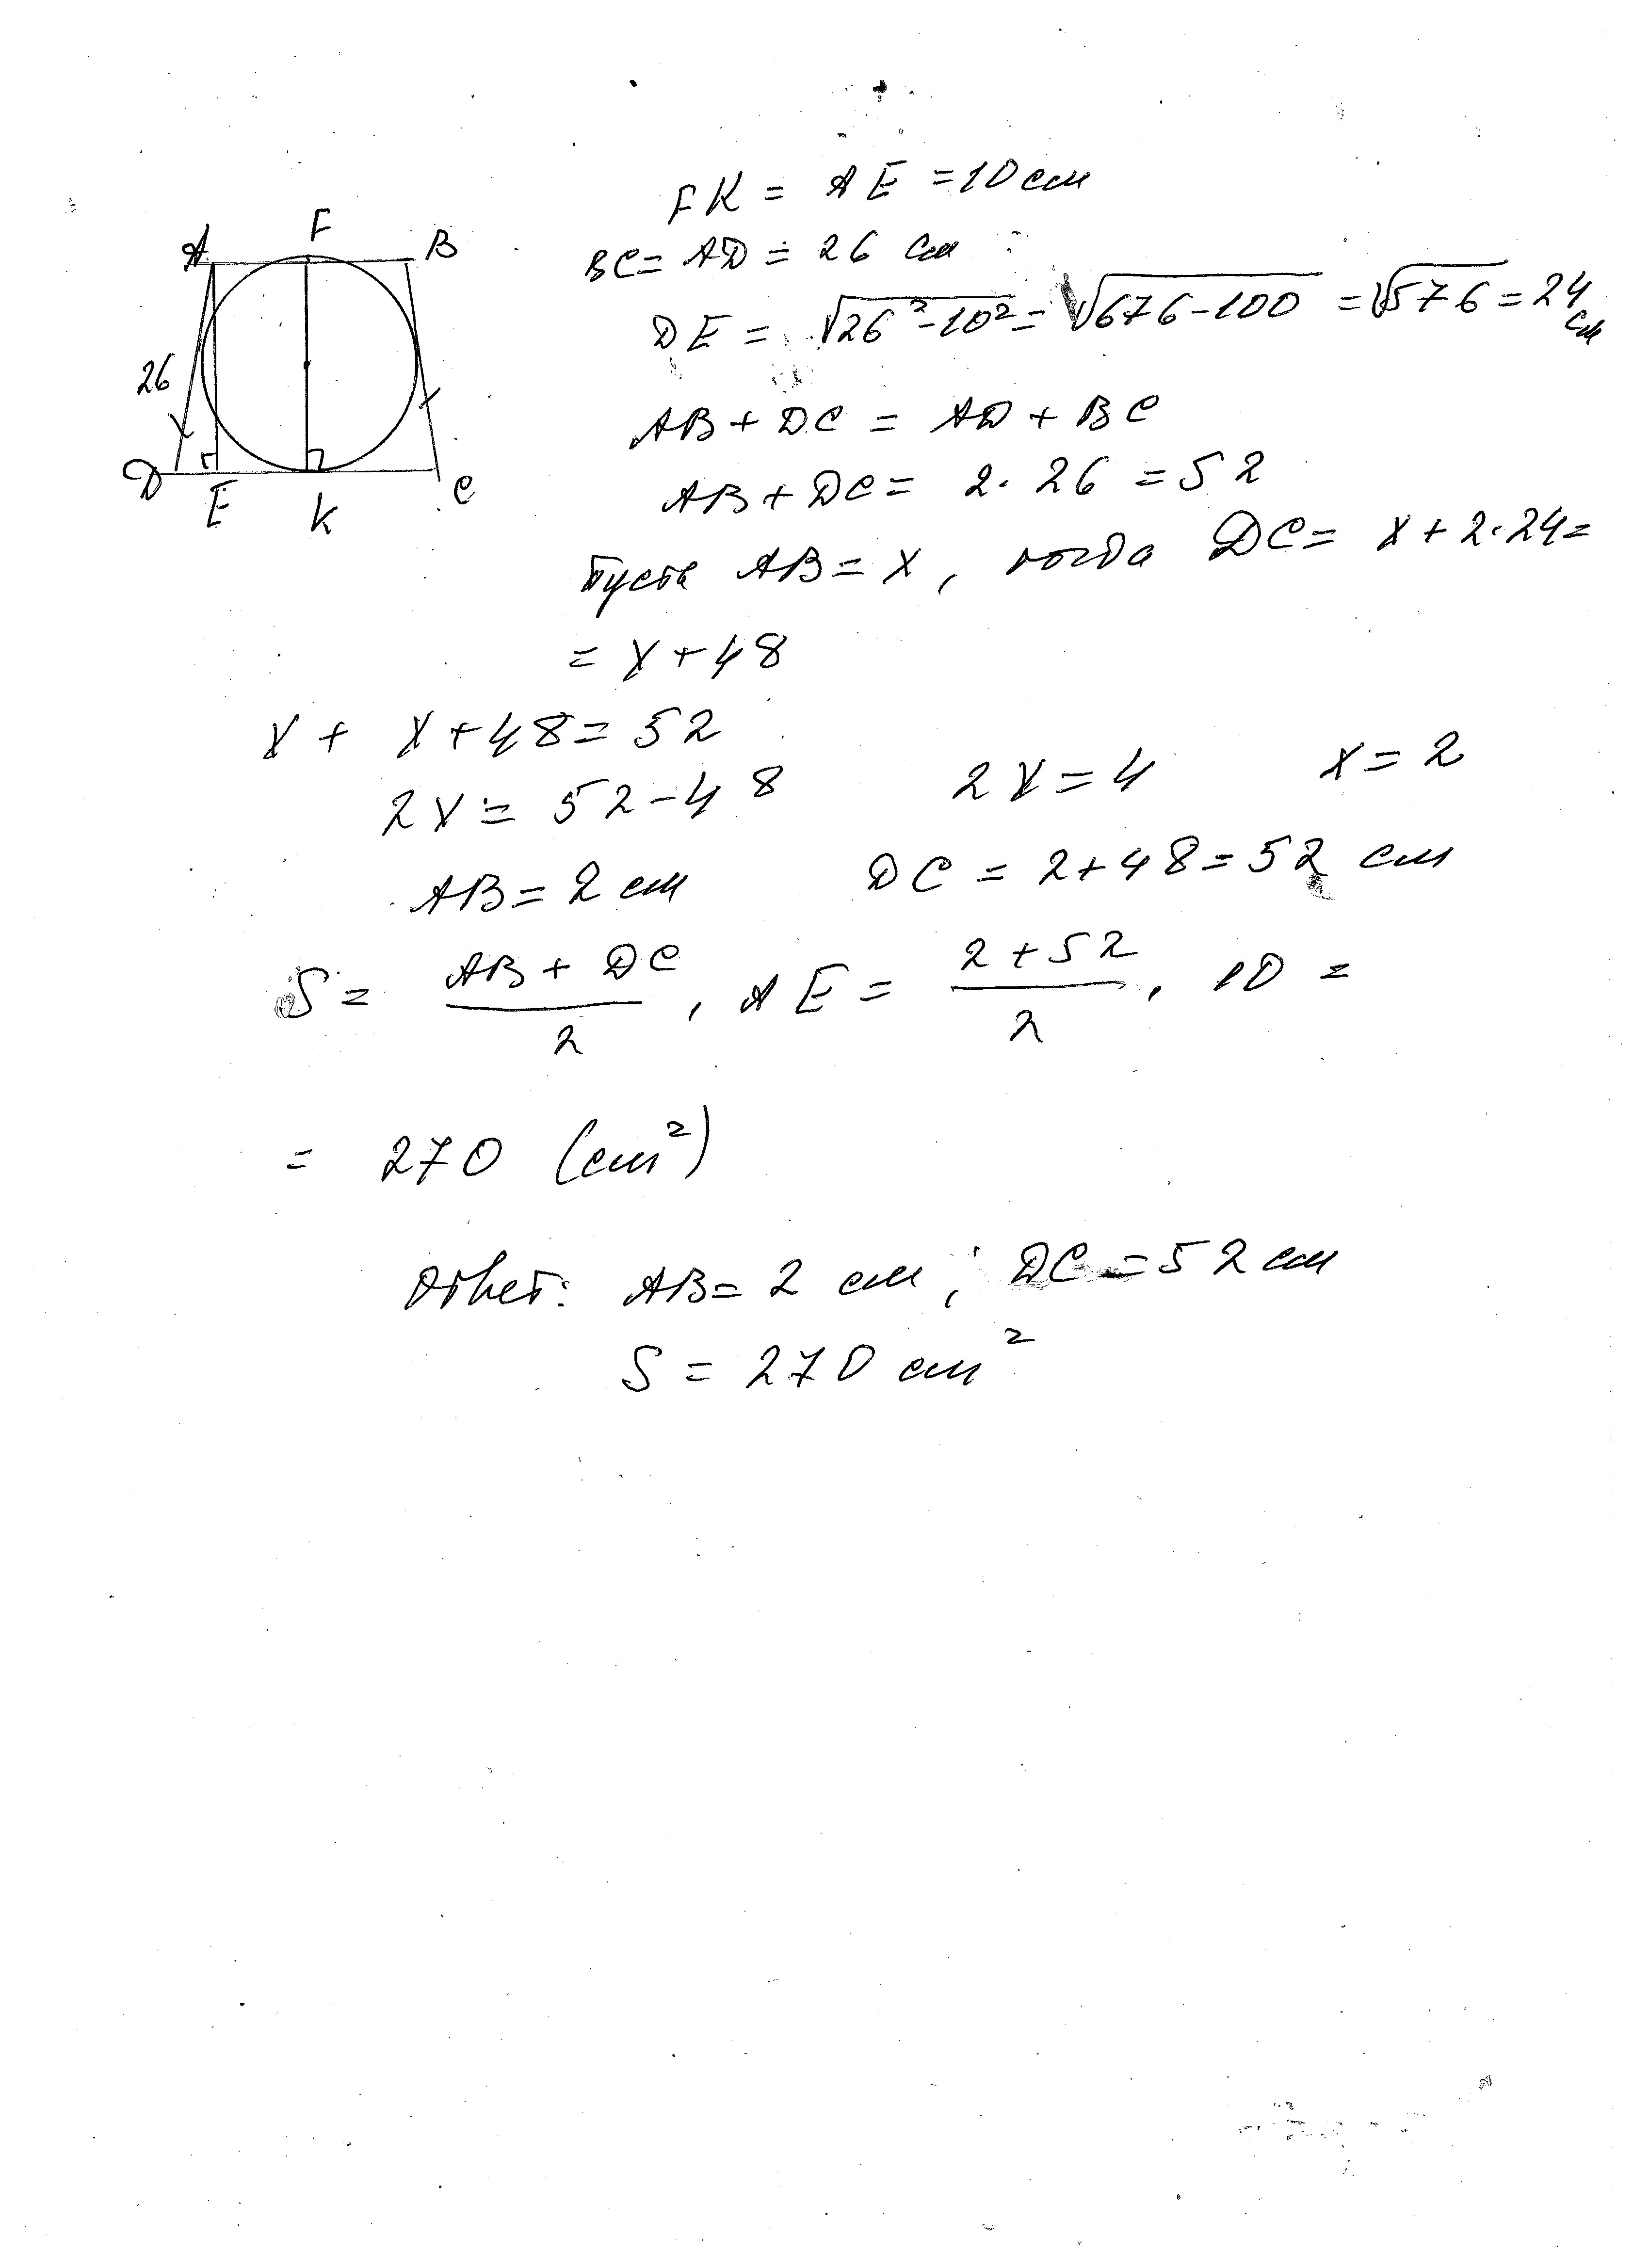 FK = AE = 10 см
BC = AD = 26 см
DE = √26²-10² = √676-100 = √576 = 24 см
AB + DC = AD + BC
AB + DC = 2·26 = 52
Пусть AB = x, тогда DC = x + 2·24 =
= x + 48
x + x + 48 = 52
2x = 52 - 48 2x = 4 x = 2
AB = 2 см DC = 2 + 48 = 52 см
S = (AB + DC)/2 · AE = (2 + 52)/2 · 10 =
= 270 (см²)
Ответ: AB = 2 см; DC = 52 см
S = 270 см²
A F B
26
D E K C